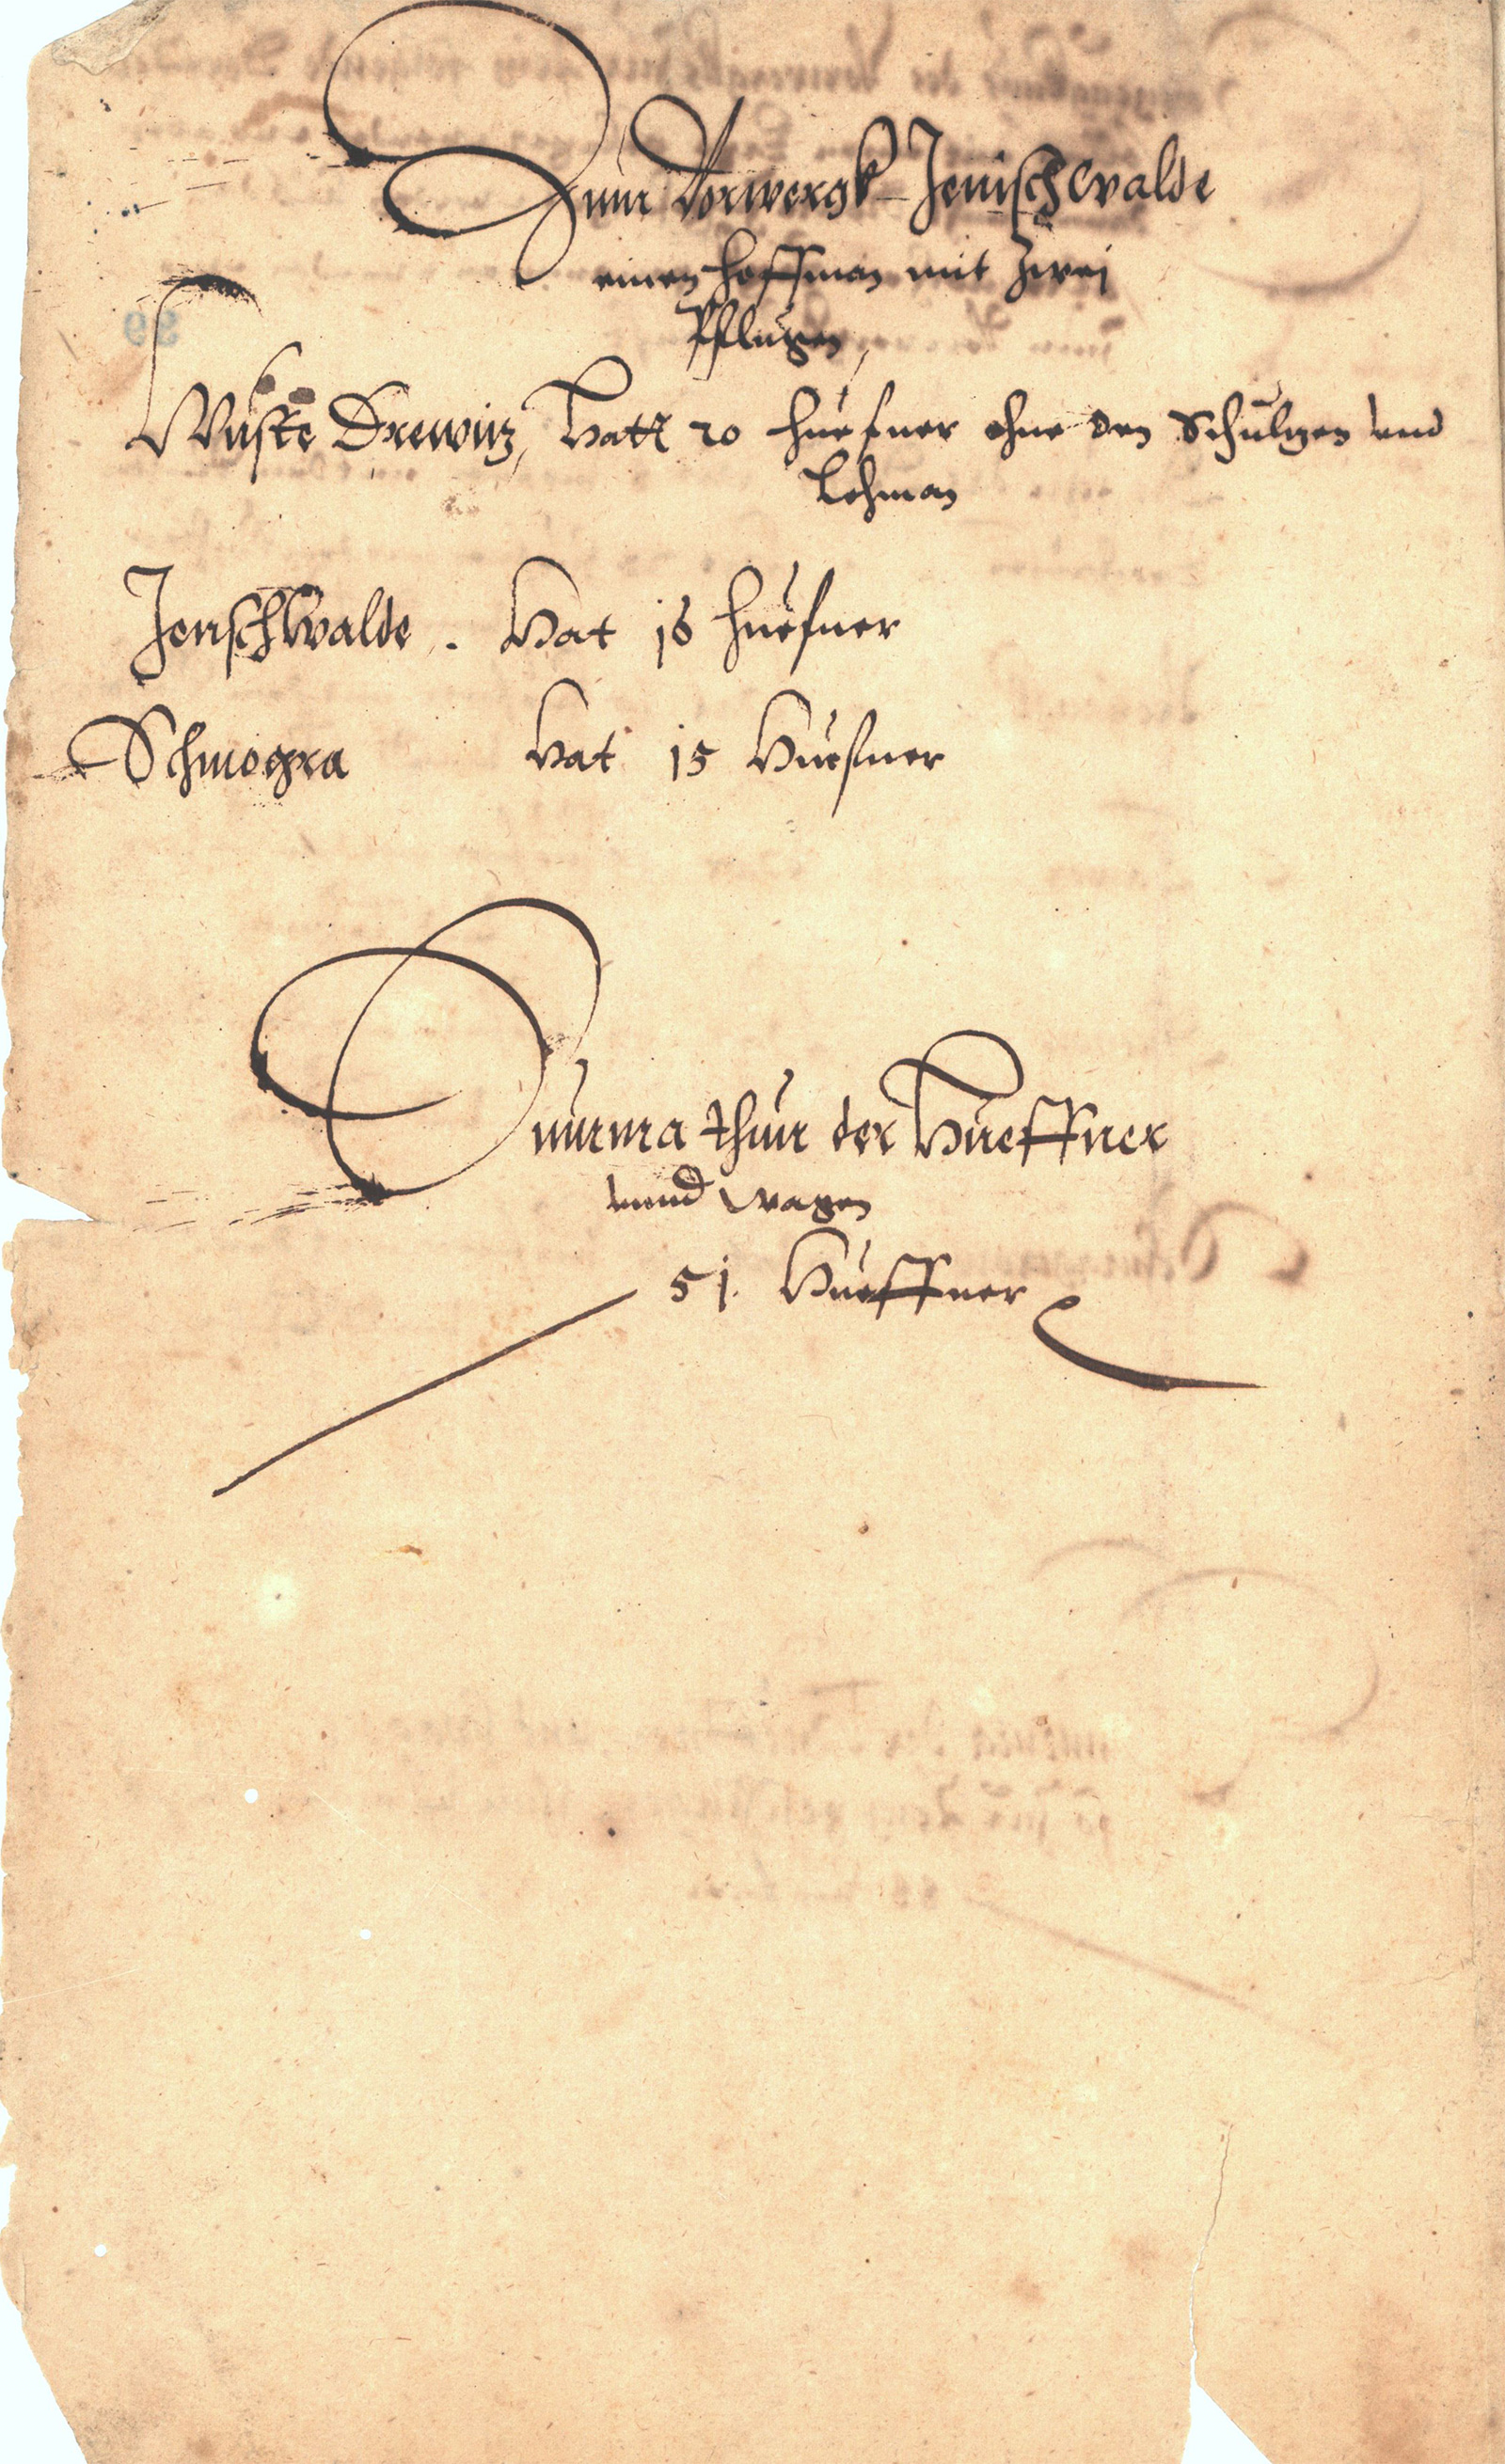 Zum Vorwergk Jenischwalde
einen hoffman mit zwei
Pflugen,
Wüste Drewitz, hatt 20 huefner ohne den Schultzen vnd
Lehman
Jenschwalde. Hat 16 huefner
Schmogra Hat 15 Huefner
Summa thun der Hueffner
vnnd wagen
51. Hueffner